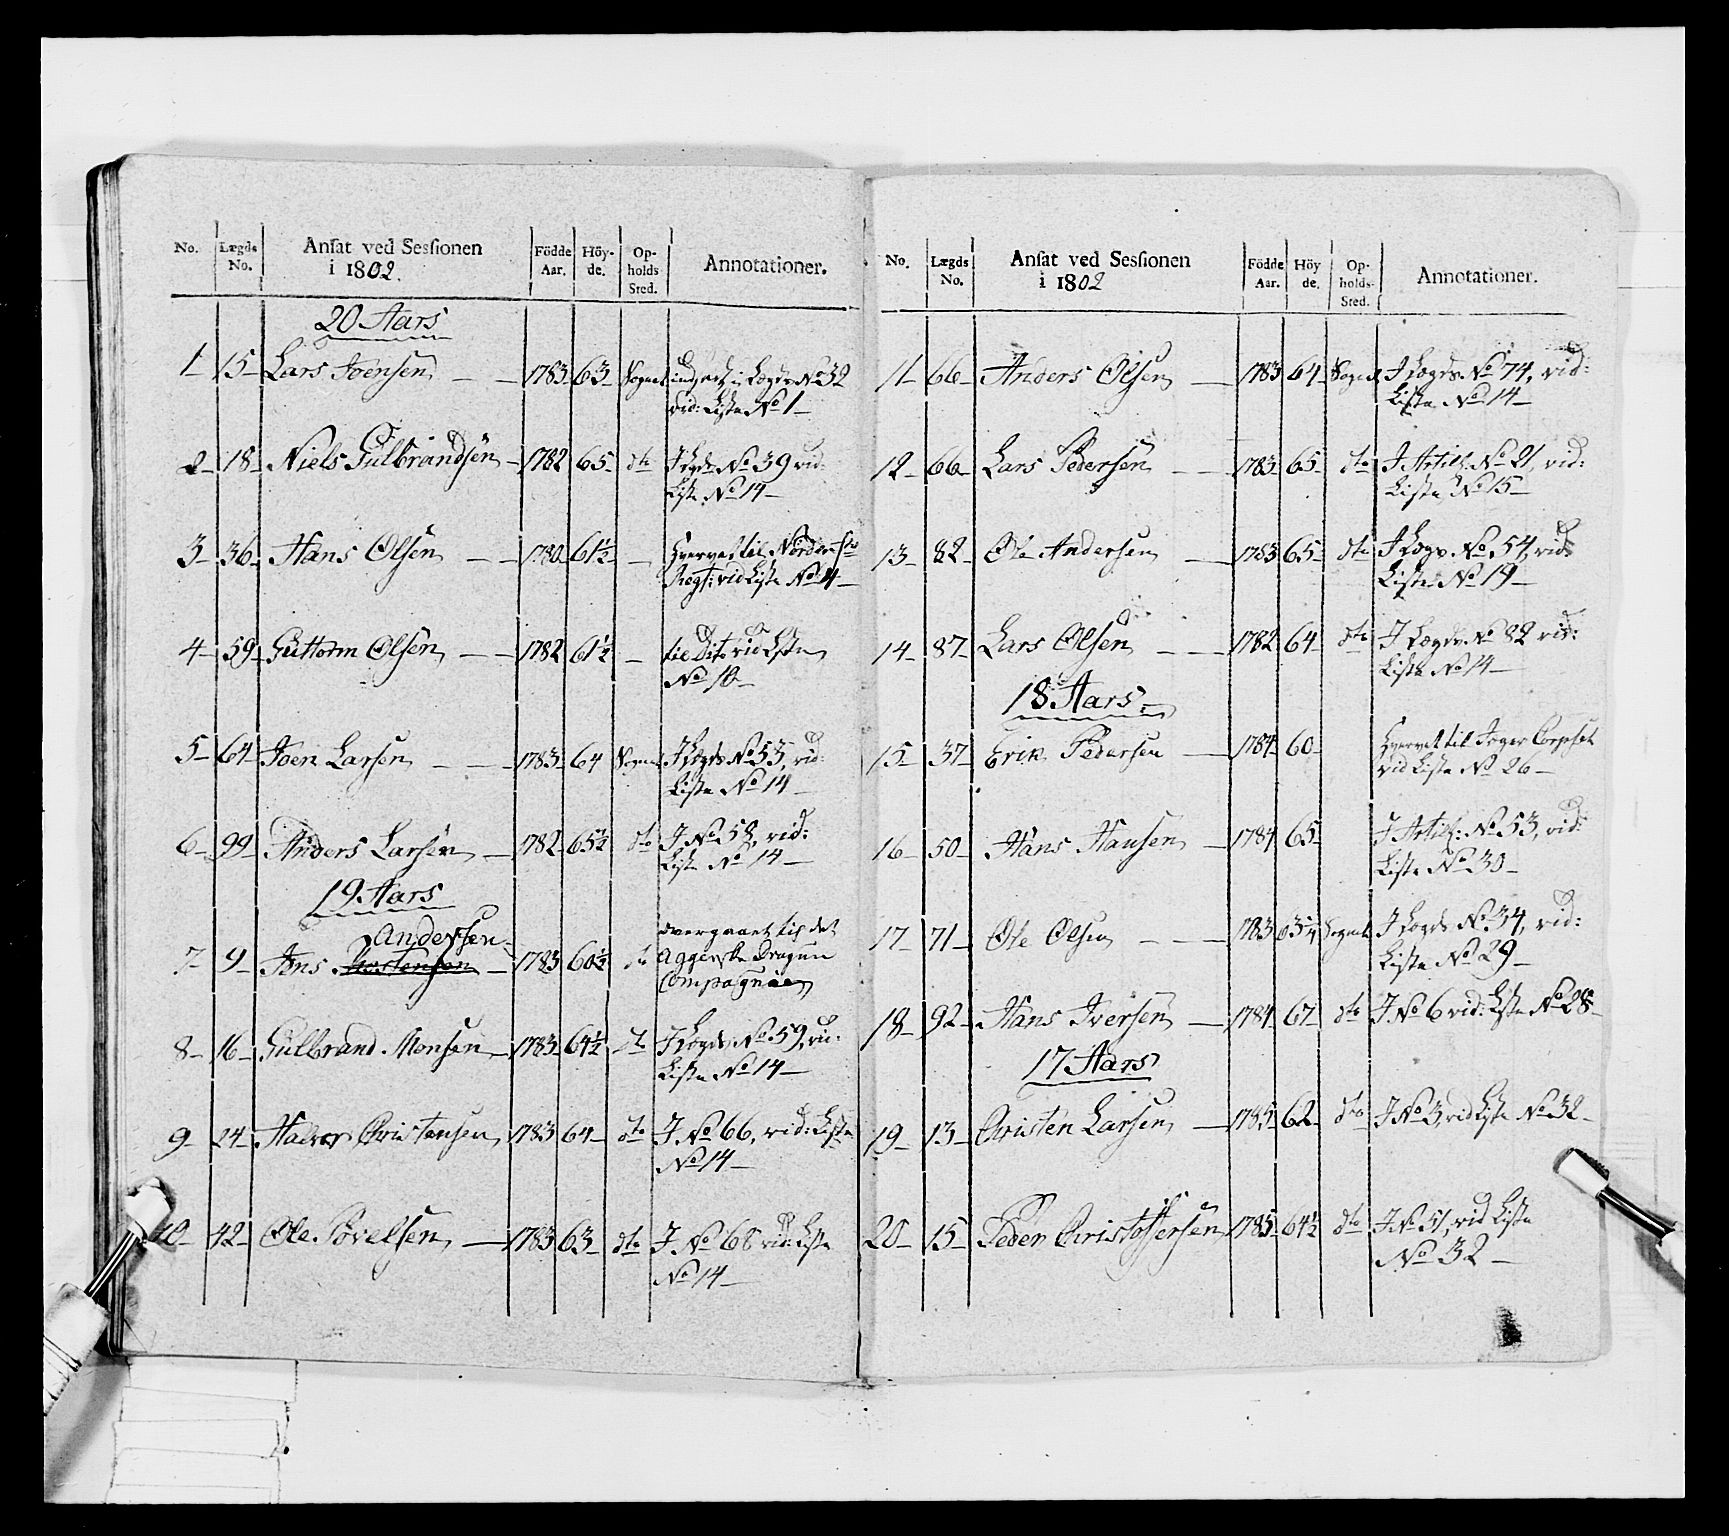 No. Lægds No. Ansat ved Sessionen i 1802. Födde Aar. Höyde. Opholds Sted. Annotationer.
20 Aars
1 15 Lars Joensen 1783 63 Sognet indsadt i Lægds No 32
vid: Liste No 1
2 18 Niels Gulbrandsen 1782 65 dto I Lgds No 39 vid
Liste No 14
3 36 Hans Olsen 1780 61½ Hvervet til Nordenf:
Regt: vid Liste No 4
4 59 Guttorm Olsen 1782 61½ til Dito vid Liste
No 10
5 64 Joen Larsen 1783 64 Sognet I Lægds No 53, vid:
Liste No 14
6 99 Anders Larsen 1782 65½ dto I No 58, vid:
Liste No 14
19 Aars
Andersen
7 9 Jens 1783 60½ dto overgaaet til det
Aggerske Dragun
Compagnie
8 16 Gulbrand Monsen 1783 64½ dto I Lægds No 59, vid:
Liste No 14
9 24 Halvor Christensen 1783 64 dto I No 66, vid: Liste
No 14
10 42 Ole Povelsen 1783 63 dto I No 68 vid: Liste
No 14
No. Lægds No. Ansat ved Sessionen i 1802 Födde Aar. Höyde. Opholds Sted. Annotationer.
11 66 Anders Olsen 1783 64 Sognet I Lægds No 74, vid:
Liste No 14
12 66 Lars Pedersen 1783 65 dto I Artill: No 21, vid:
Liste No 15
13 82 Ole Andersen 1783 65 dto I Lægs No 54, vid
Liste No 19
14 87 Lars Olsen 1782 64 dto I Lægds No 82 vid:
Liste No 14
18 Aars
15 37 Erik Pedersen 1784 60 Hvervet til Jæger Corpset
vid Liste No 26
16 50 Hans Hansen 1784 65 I Artill: No 53, vid:
Liste No 30
17 71 Ole Olsen 1783 Sognet I Lægds No 34, vid:
Liste No 29
18 92 Hans Iversen 1784 67 dto I No 6 vid: Liste No 28
17 Aars
19 13 Christen Larsen 1785 62 dto I No 3, vid Liste No 32
20 15 Peder Christophersen 1785 64½ dto I No 51, vid Liste
No 32